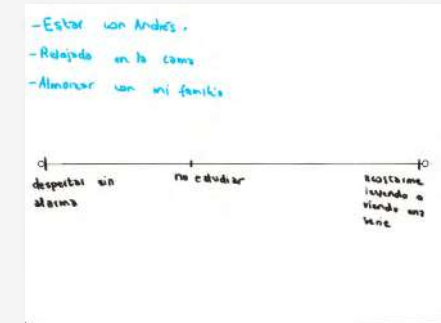 - Estar con Andrés.
- Relajado en la cama
- Almorzar con mi familia
despertar sin
alarma
no estudiar
acostarme
leyendo o
viendo una
serie